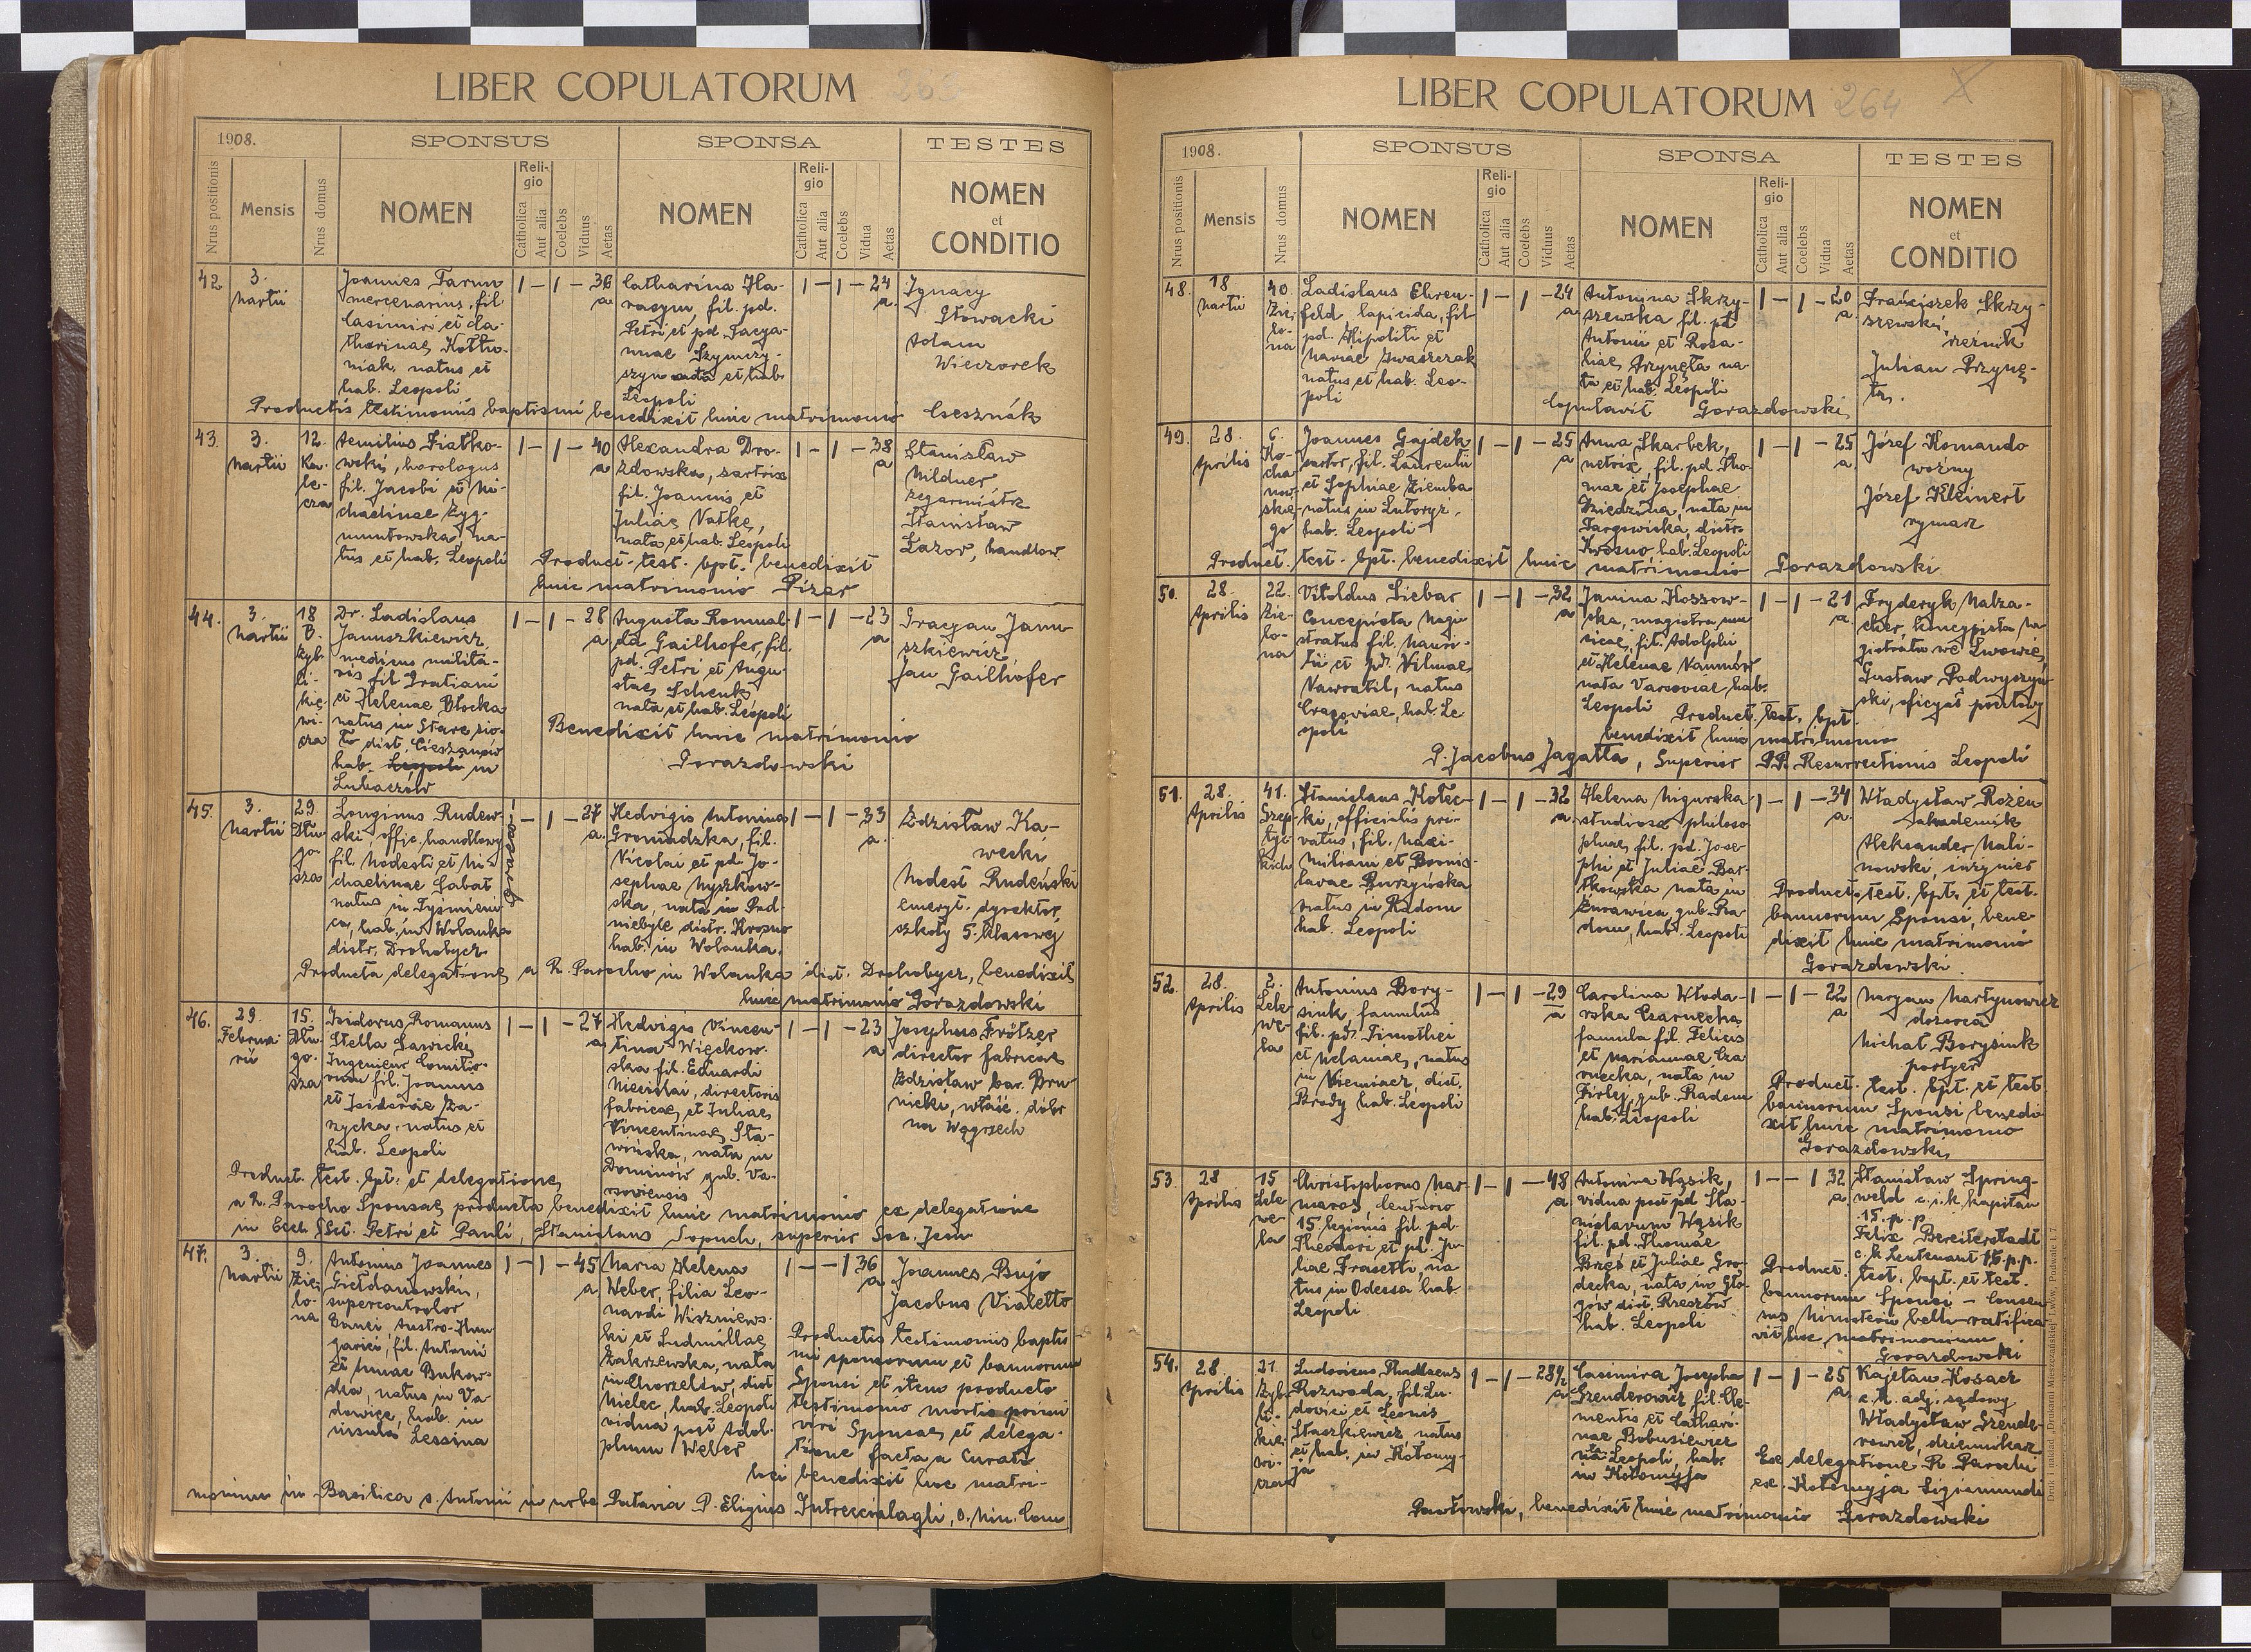 LIBER COPULATORUM 263
1908.
SPONSUS
SPONSA
TESTES
Nrus positionis
Mensis
Nrus domus
NOMEN
Religio
Catholica
Aut alia
Coelebs
Viduus
Aetas
NOMEN
Religio
Catholica
Aut alia
Coelebs
Vidua
Aetas
NOMEN
et
CONDITIO
42.
3.
Martii
Joannes Tarum
mercenarius, fil
Casimiri et Ca-
tharinae Kotłu-
niak, natus et
hab. Leopoli
1 – 1 – 36
a
Catharina Ha-
rasym, fil. pd.
Petri et pd. Tacya-
nnae Szymczy-
szyn nata et hab.
Leopoli
1 – 1 – 24
a.
Ignacy
Głowacki
Adam
Wieczorek
Productis testimoniis baptismi benedixit huic matrimonio Csesznák
43.
3.
Martii
12.
Ka-
le-
cza
Aemilius Fiałko-
wski, horologus
fil. Jacobi et Mi-
chaelinae Zyg-
muntowska, na-
tus et hab. Leopoli
1 – 1 – 40
a
Alexandra Dro-
zdowska, sartrix
fil. Joannis et
Juliae Natke,
nata et hab. Leopoli
1 – 1 – 38
a
Stanisław
Mildner
zegarmistrz
Stanisław
Łazor, handlow.
Product. test. bpt. benedixit
huic matrimonio Pizar
44.
3.
Martii
18
B.
Zyb-
li-
kie-
wi-
cza
Dr. Ladislaus
Januszkiewicz
medicus milita-
ris fil Gratiani
et Helenae Błocka
natus in Stare sio-
ło dist. Cieszanów
hab. Leopoli in
Lubaczów
1 – 1 – 28
a
Augusta Romual-
da Gailhofer, fil.
pd. Petri et Augu-
stae Schenk
nata et hab. Leopoli
1 – 1 – 23
a
Gracyan Janu-
szkiewicz
Jan Gailhofer
Benedixit huic matrimonio
Gorazdowski
45.
3.
Martii
29.
Dłu-
go-
sza
Longinus Rudeń-
ski, offic. handlowy
fil. Modesti et Mi-
chaelinae Sabat
natus in Tyśmieni-
ca, hab. in Wolanka
distr. Drohobycz
– 1 – 27
a.
Hedvigis Antonina
Gromadzka, fil.
Nicolai et pd. Jo-
sephae Myszkow-
ska, nata in Pod-
niebyle distr. Krosno
hab. in Wolanka.
1 – 1 – 33
a.
Zdzisław Ka-
wecki
Modest Rudeński
emeryt. dyrektor
szkoły 5. klasowej
Producta delegatione a R. Parocho in Wolanka dist. Drohobycz, benedixit
huic matrimonio Gorazdowski
46.
29.
Februa-
rii
15.
Dłu-
go-
sza
Isidorus Romanus
Stella Sawicki
Ingenieur Comitio-
rum fil. Joannis
et Isidorae Za-
rzycka, natus et
hab. Leopoli
1 – 1 – 27
a
Hedvigis Vincen-
tina Więckow-
ska fil. Eduardi
Miecislai, directoris
fabricae et Juliae
Vincentinae Sta-
wińska, nata in
Dominów gub. Va-
rsoviensis
1 – 1 – 23
a
Josephus Frötzer
director fabricae
Zdzisław bar. Bru-
nicki, właśc. dóbr
na Węgrzech
Product. test. bpt. et delegatione
a R. Parocho Sponsae producta benedixit huic matrimonio ex delegatione
in Eccl. SSct. Petri et Pauli, Stanislaus Sopuch, superior Soc. Jesu
47.
3.
Martii
9.
Zie-
lo-
na
Antonius Joannes
Giełdanowski,
supercontrolor
Banci Austro-Hun
garici, fil. Antonii
et Annae Bukow-
ska, natus in Va-
dowice, hab. in
insula Lessina
1 – 1 – 45
a
Maria Helena
Weber, filia Leo-
nardi Wiszniews-
ki et Ludmillae
Zakrzewska, nata
in Chorzelów, dist
Mielec, hab. Leopoli
vidua post Adol-
phum Weber
1 – – 1 36
a
Joannes Bujo
Jacobus Vialetto
Productis testimoniis baptis-
mi sponsorum et bannorum
Sponsi et item producto
testimonio mortis primi
viri Sponsae, et delega-
tione facta a Curato
loci benedixit hoc matri-
monium in Basilica s. Antonii in urbe Patavia P. Eligius Intreccialagli, O. Min. Conv
LIBER COPULATORUM 264 X
1908.
SPONSUS
SPONSA
TESTES
Nrus positionis
Mensis
Nrus domus
NOMEN
Religio
Catholica
Aut alia
Coelebs
Viduus
Aetas
NOMEN
Religio
Catholica
Aut alia
Coelebs
Vidua
Aetas
NOMEN
et
CONDITIO
48.
18
Martii
40.
Zie-
lo-
na
Ladislaus Ehren-
feld lapicida, fil
pd. Hipoliti et
Mariae Iwaszczak
natus et hab. Leo-
poli
1 – 1 – 24
a
Antonina Skrzy-
szewska fil. pd
Antonii et Rosa-
liae Przynęta na-
ta et hab. Leopoli
1 – 1 – 20
a.
Franciszek Skrzy-
szewski,
rzeźnik
Julian Przynę-
ta.
Copulavit Gorazdowski
49.
28.
Aprilis
6.
Ko-
cha
now-
skie-
go
Joannes Gajdek
sartor, fil. Laurentii
et Sophiae Ziemba
natus in Lutoryz,
hab. Leopoli
1 – 1 – 25
a
Anna Skarbek,
netrix, fil. pd. Tho-
mae et Josephae
Dziedzina, nata in
Targowiska, distr.
Krosno hab. Leopoli
1 – 1 – 25
a.
Józef Komando
woźny
Józef Kleinert
rymarz
Product. test. bpt. benedixit huic matrimonio Gorazdowski
50.
28.
Aprilis
22.
Zie-
lo-
na
Vitoldus Liebar
Concepista Magi-
stratus fil. Mauri-
tii et pd. Vilmae
Nawratil, natus
Cracoviae, hab. Le-
opoli
1 – 1 – 32
a
Janina Kossow-
ska, magistra mu
sicae, fil. Adolphi
et Helenae Naumów
nata Varsoviae hab.
Leopoli
1 – 1 – 21
a.
Fryderyk Malza-
cher, koncypista Ma-
gistratu we Lwowie
Gustaw Podwyszyń-
ski, oficyał pocztowy
Product. test. bpt.
benedixit huic matrimonio
P. Jacobus Jagałła, Superior PP. Resurrectionis Leopoli
51.
28.
Aprilis
41.
Szep-
tyc-
kich
Stanislaus Kotec-
ki, officialis pri-
vatus, fil. Maxi-
miliani et Bronis-
lavae Burzyńska
natus in Radom
hab. Leopoli
1 – 1 – 32
a.
Helena Migurska
studiosa philoso
phiae, fil. pd. Jose-
phi et Juliae Bar-
tkowska nata in
Żurawica, gub. Ra-
dom, hab. Leopoli
1 – 1 – 34
a.
Władysław Rozen
akademik
Aleksander Mali-
nowski, inżynier
Product. test. bpt. et test.
bannorum Sponsi, bene-
dixit huic matrimonio
Gorazdowski.
52.
28.
Aprilis
2.
Lele-
we-
la
Antonius Bory-
sink, famulus
fil. pd. Timothei
et Melaniae, natus
in Niemiacz, dist.
Brody hab. Leopoli
1 – 1 – 29
a
Carolina Włoda-
rska Czarnecka
famula fil. Felicis
et Mariannae Cza
rnecka, nata in
Firlej, gub. Radom
hab. Leopoli
1 – 1 – 22
a
Maryan Martynowicz
dozorca
Michał Borysink
portyer
Product. test. bpt. et test.
bannorum Sponsi benedi-
xit huic matrimonio
Gorazdowski
53.
28
Aprilis
15
Lele-
we-
la
Christophorus Mar-
maros, centurio
15. legionis fil. pd.
Theodori et pd. Ju-
liae Frasetti, na
tus in Odessa hab.
Leopoli
1 – 1 – 48
a
Antonina Wąsik,
vidua post pd. Sta-
nislavum Wąsik
fil. pd. Thomae
Bręś et Juliae Gro-
decka, nata in Gło-
gów dist. Rzeszów
hab. Leopoli
1 – – 1 32
a.
Stanisław Spring-
weld c. i. k. kapitan
15. p. p.
Felix Bereiterstadt
c. k. Leutenant 15. p. p.
Product. test. bapt. et test.
bannorum Sponsi – Consen
sus Ministerii belli ratifica
vit hoc matrimonium
Gorazdowski
54.
28
Aprilis
21.
Zyb-
li-
kie-
wi-
cza
Ludovicus Thadaeus
Rozwoda, fil. Lu-
dovici et Leonis
Staszkiewicz natus
et hab. in Kołomy-
ja
1 – 1 – 28½
a
Casimira Josepha
Szenderowicz fil. Cle-
mentis et Cathari-
nae Bobusiewicz
nata Leopoli, hab.
in Kołomyja
1 – 1 – 25
a
Kajetan Kosacz
c. k. adj. sądowy
Władysław Szende-
rowicz, dziennikarz
Ex delegatione R. Parochi
ex Kołomyja Sigismundi
Pawłowski, benedixit huic matrimonio Gorazdowski
Druk i nakład „Drukarni Mieszczańskiej" Lwów, Podwale l. 7.